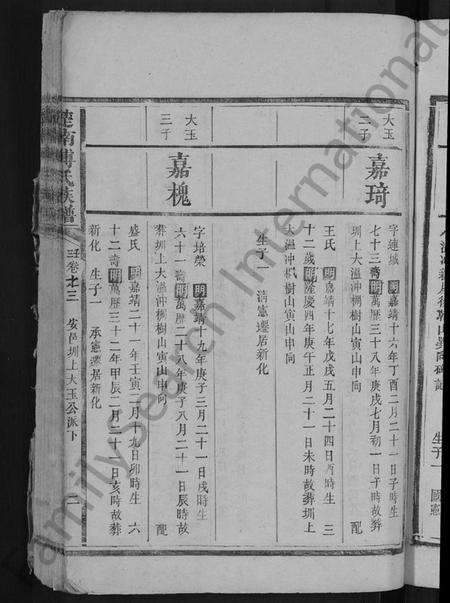 大玉
三子
嘉琦
字連城 明嘉靖十六年丁酉二月二十一日子時生
七十三壽明萬歷三十八年庚戌七月初一日子時故葬
圳上大溫沖椆樹山寅山申向 配
王氏 明嘉靖十七年戊戌五月二十四日酉時生 三
十二歲明隆慶四年庚午正月二十一日未時故葬圳上
大溫沖椆樹山寅山申向
生子一 清憲遷居新化
大玉
三子
嘉槐
字培榮 明嘉靖十九年庚子三月二十一日戌時生
六十一壽明萬歷二十八年庚子八月二十一日辰時故
葬圳上大溫沖椆樹山寅山申向 配
盛氏 明嘉靖二十一年壬寅二月十九日卯時生 六
十二壽明萬歷三十二年甲辰二月二十一日亥時故葬
新化 生子一 承憲遷居新化
楚南傅氏族譜
卷 三 安邑圳上大玉公派下 二
生子一 國憲
FamilySearch International